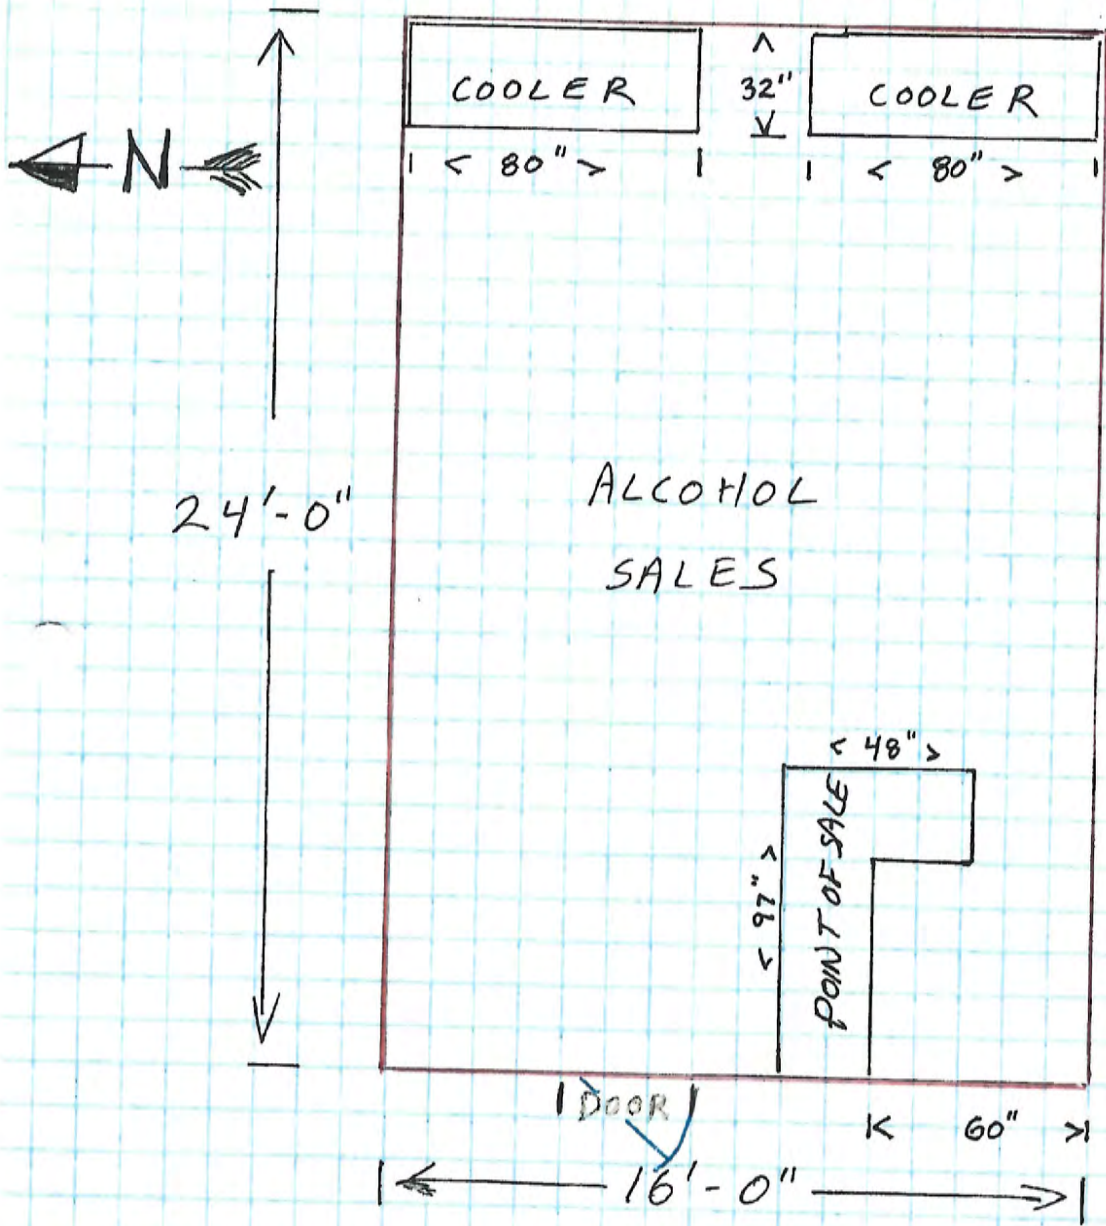 COOLER
32"
COOLER
N
< 80" >
< 80" >
24'-0"
ALCOHOL
SALES
< 48" >
POINT OF SALE
DOOR
60"
16'-0"